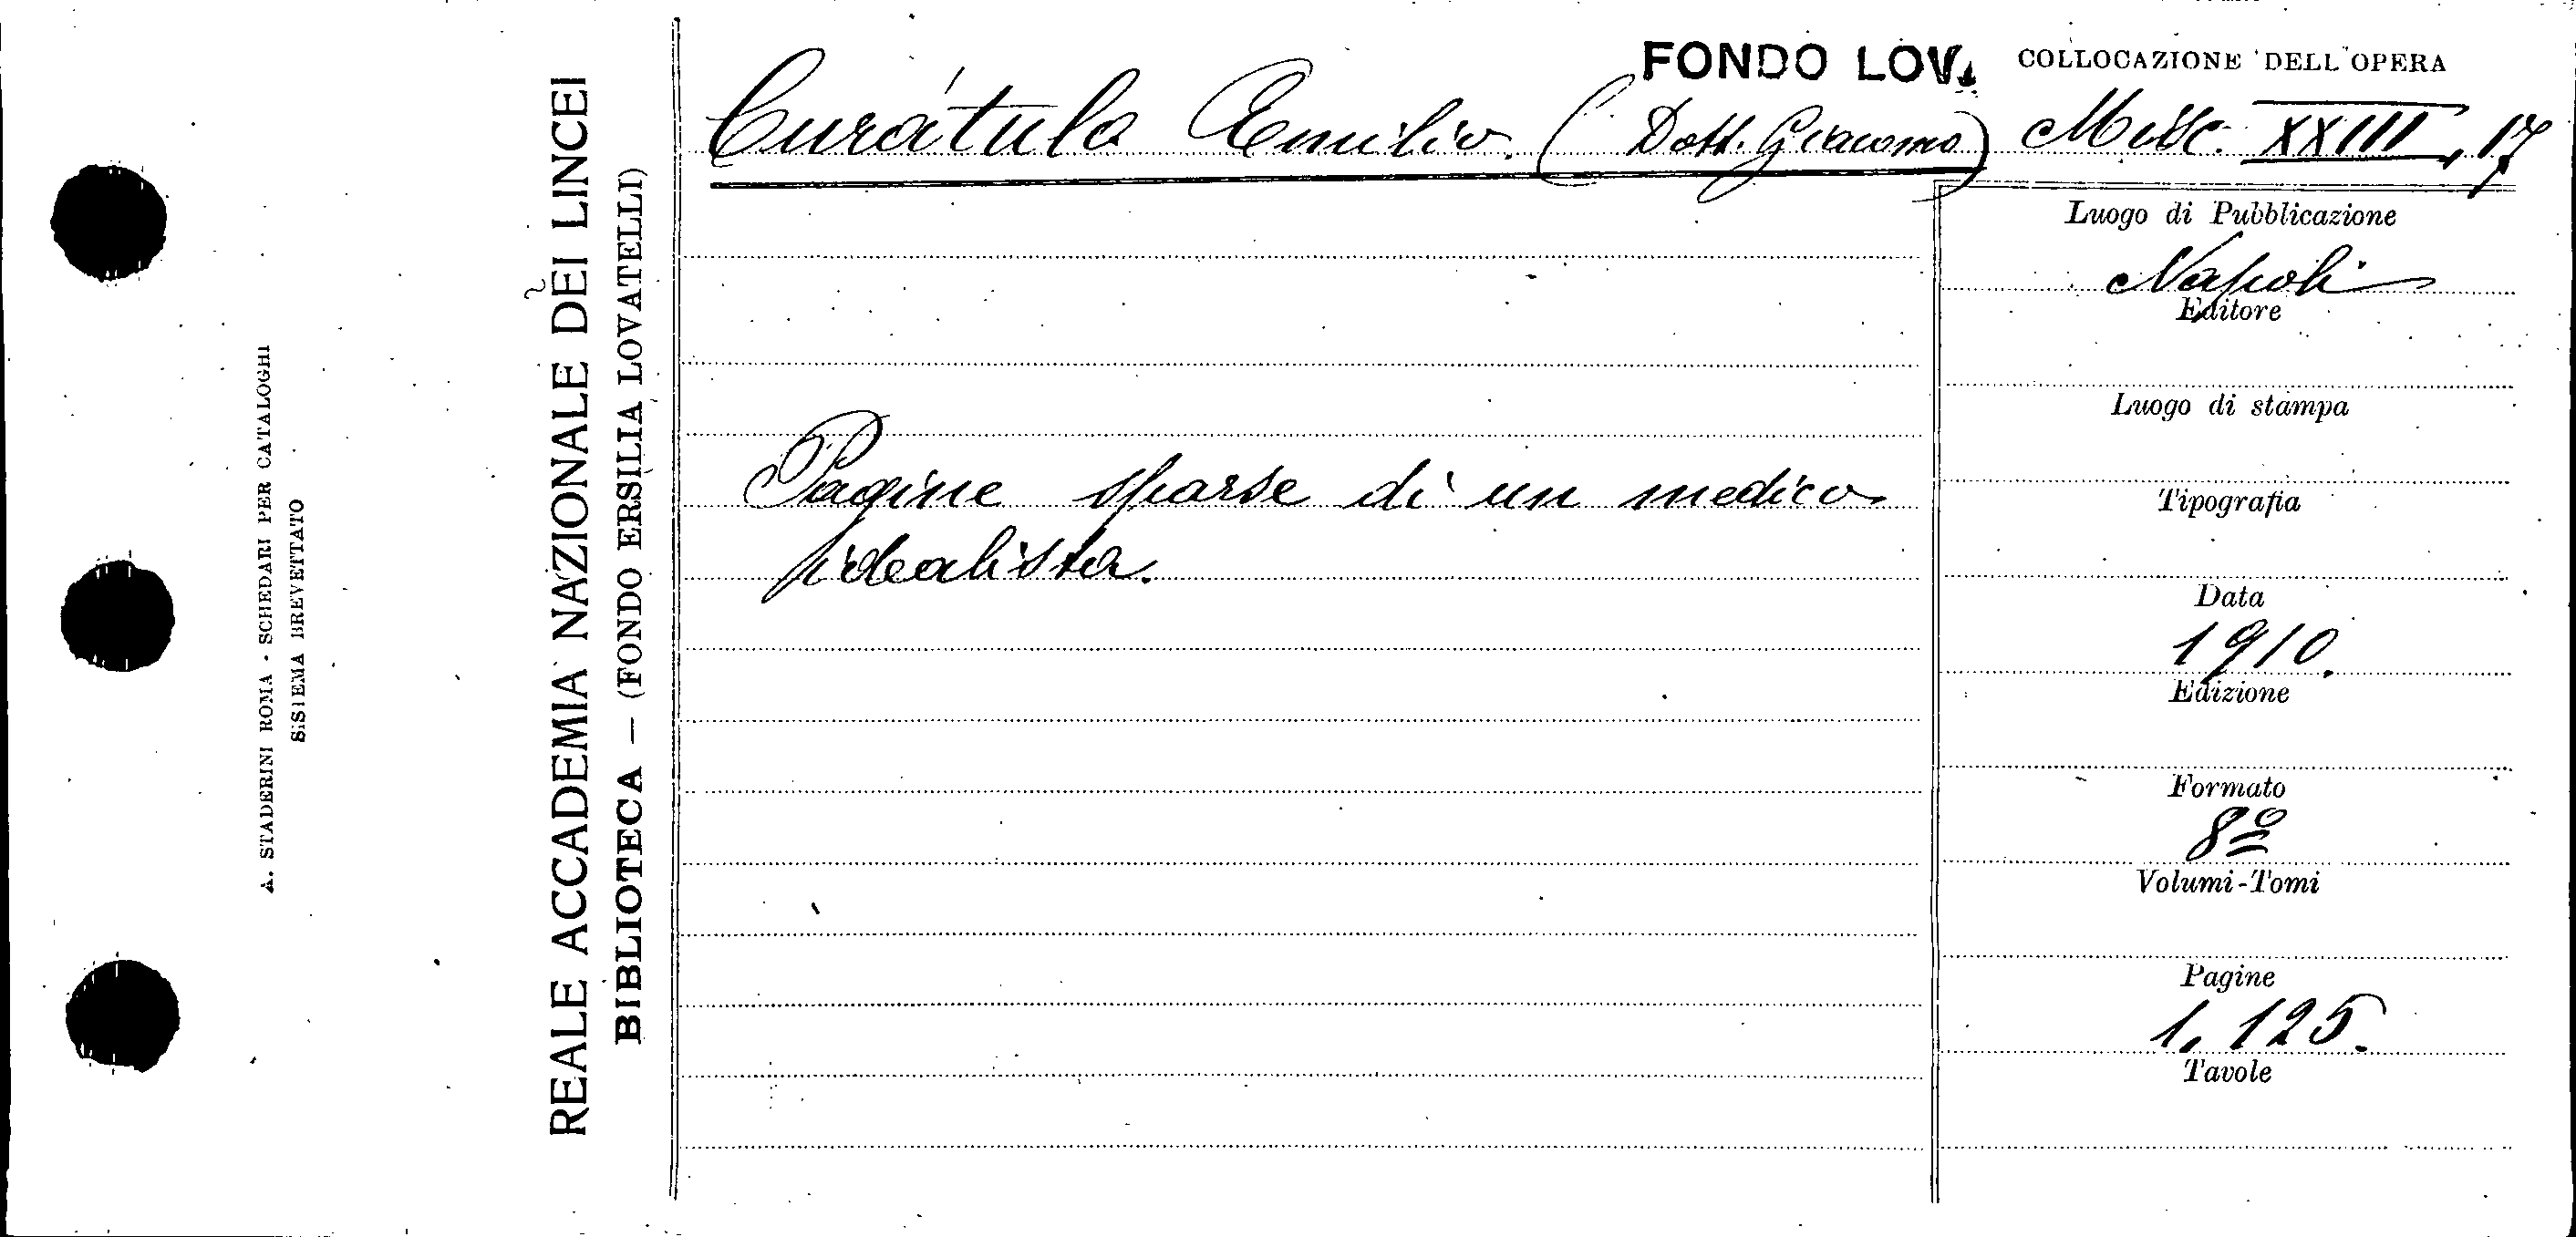 A. STADERINI ROMA - SCHEDARI PER CATALOGHI
SISTEMA BREVETTATO
REALE ACCADEMIA NAZIONALE DEI LINCEI
BIBLIOTECA — (FONDO ERSILIA LOVATELLI)
FONDO LOV.
COLLOCAZIONE DELL'OPERA
Curátulo Emilio (Dott. Giacomo)
Misc. XXIII, 17
Pagine sparse di un medico
idealista.
Luogo di Pubblicazione
Napoli
Editore
Luogo di stampa
Tipografia
Data
1910.
Edizione
Formato
8º
Volumi-Tomi
Pagine
1. 125.
Tavole